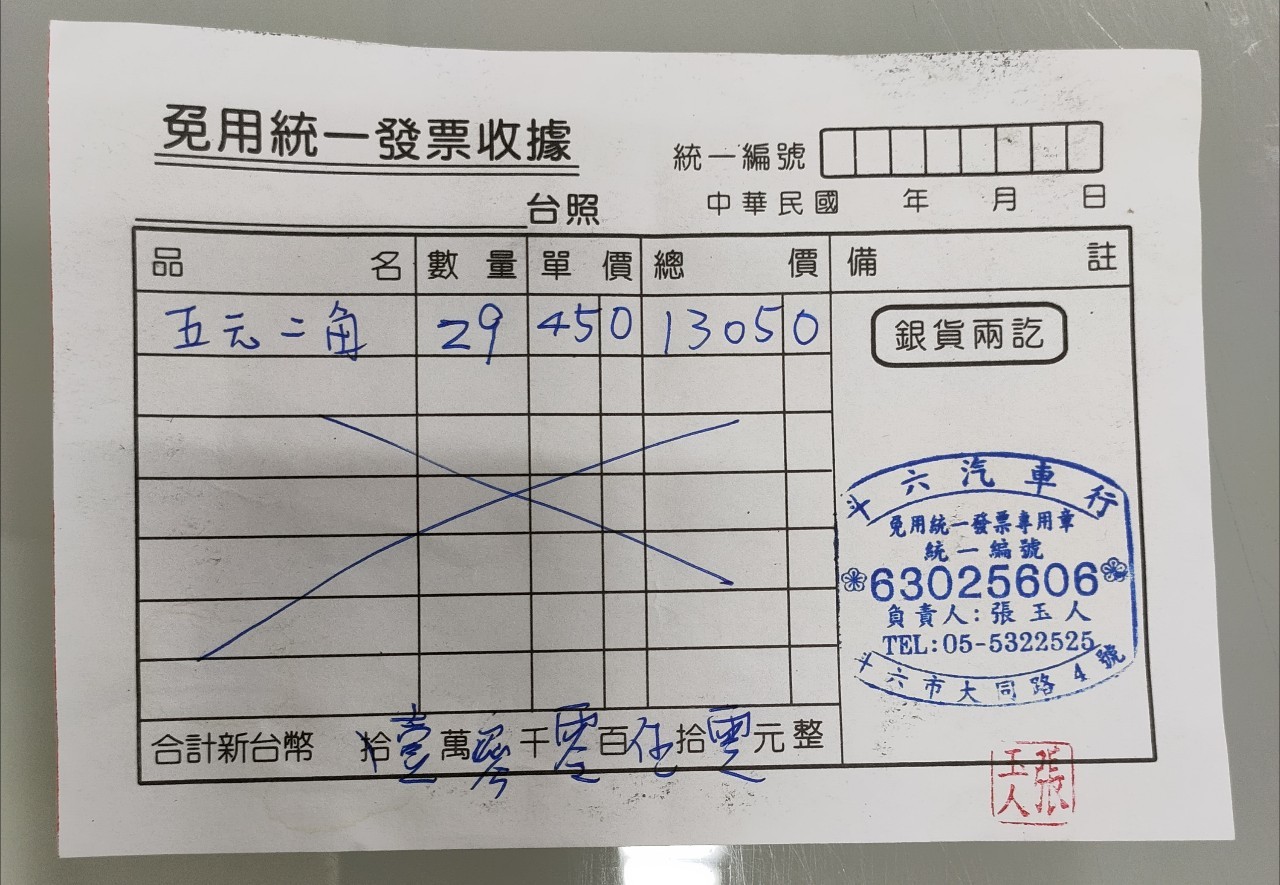 免用統一發票收據
統一編號
中華民國 年 月 日
台照
品名 數量 單價 總價 備註
五元二角 29 450 13050
銀貨兩訖
斗六汽車行
免用統一發票專用章
統一編號
63025606
負責人:張玉人
TEL:05-5322525
斗六市大同路4號
合計新台幣 拾壹萬 千零百伍拾零元整
張玉人